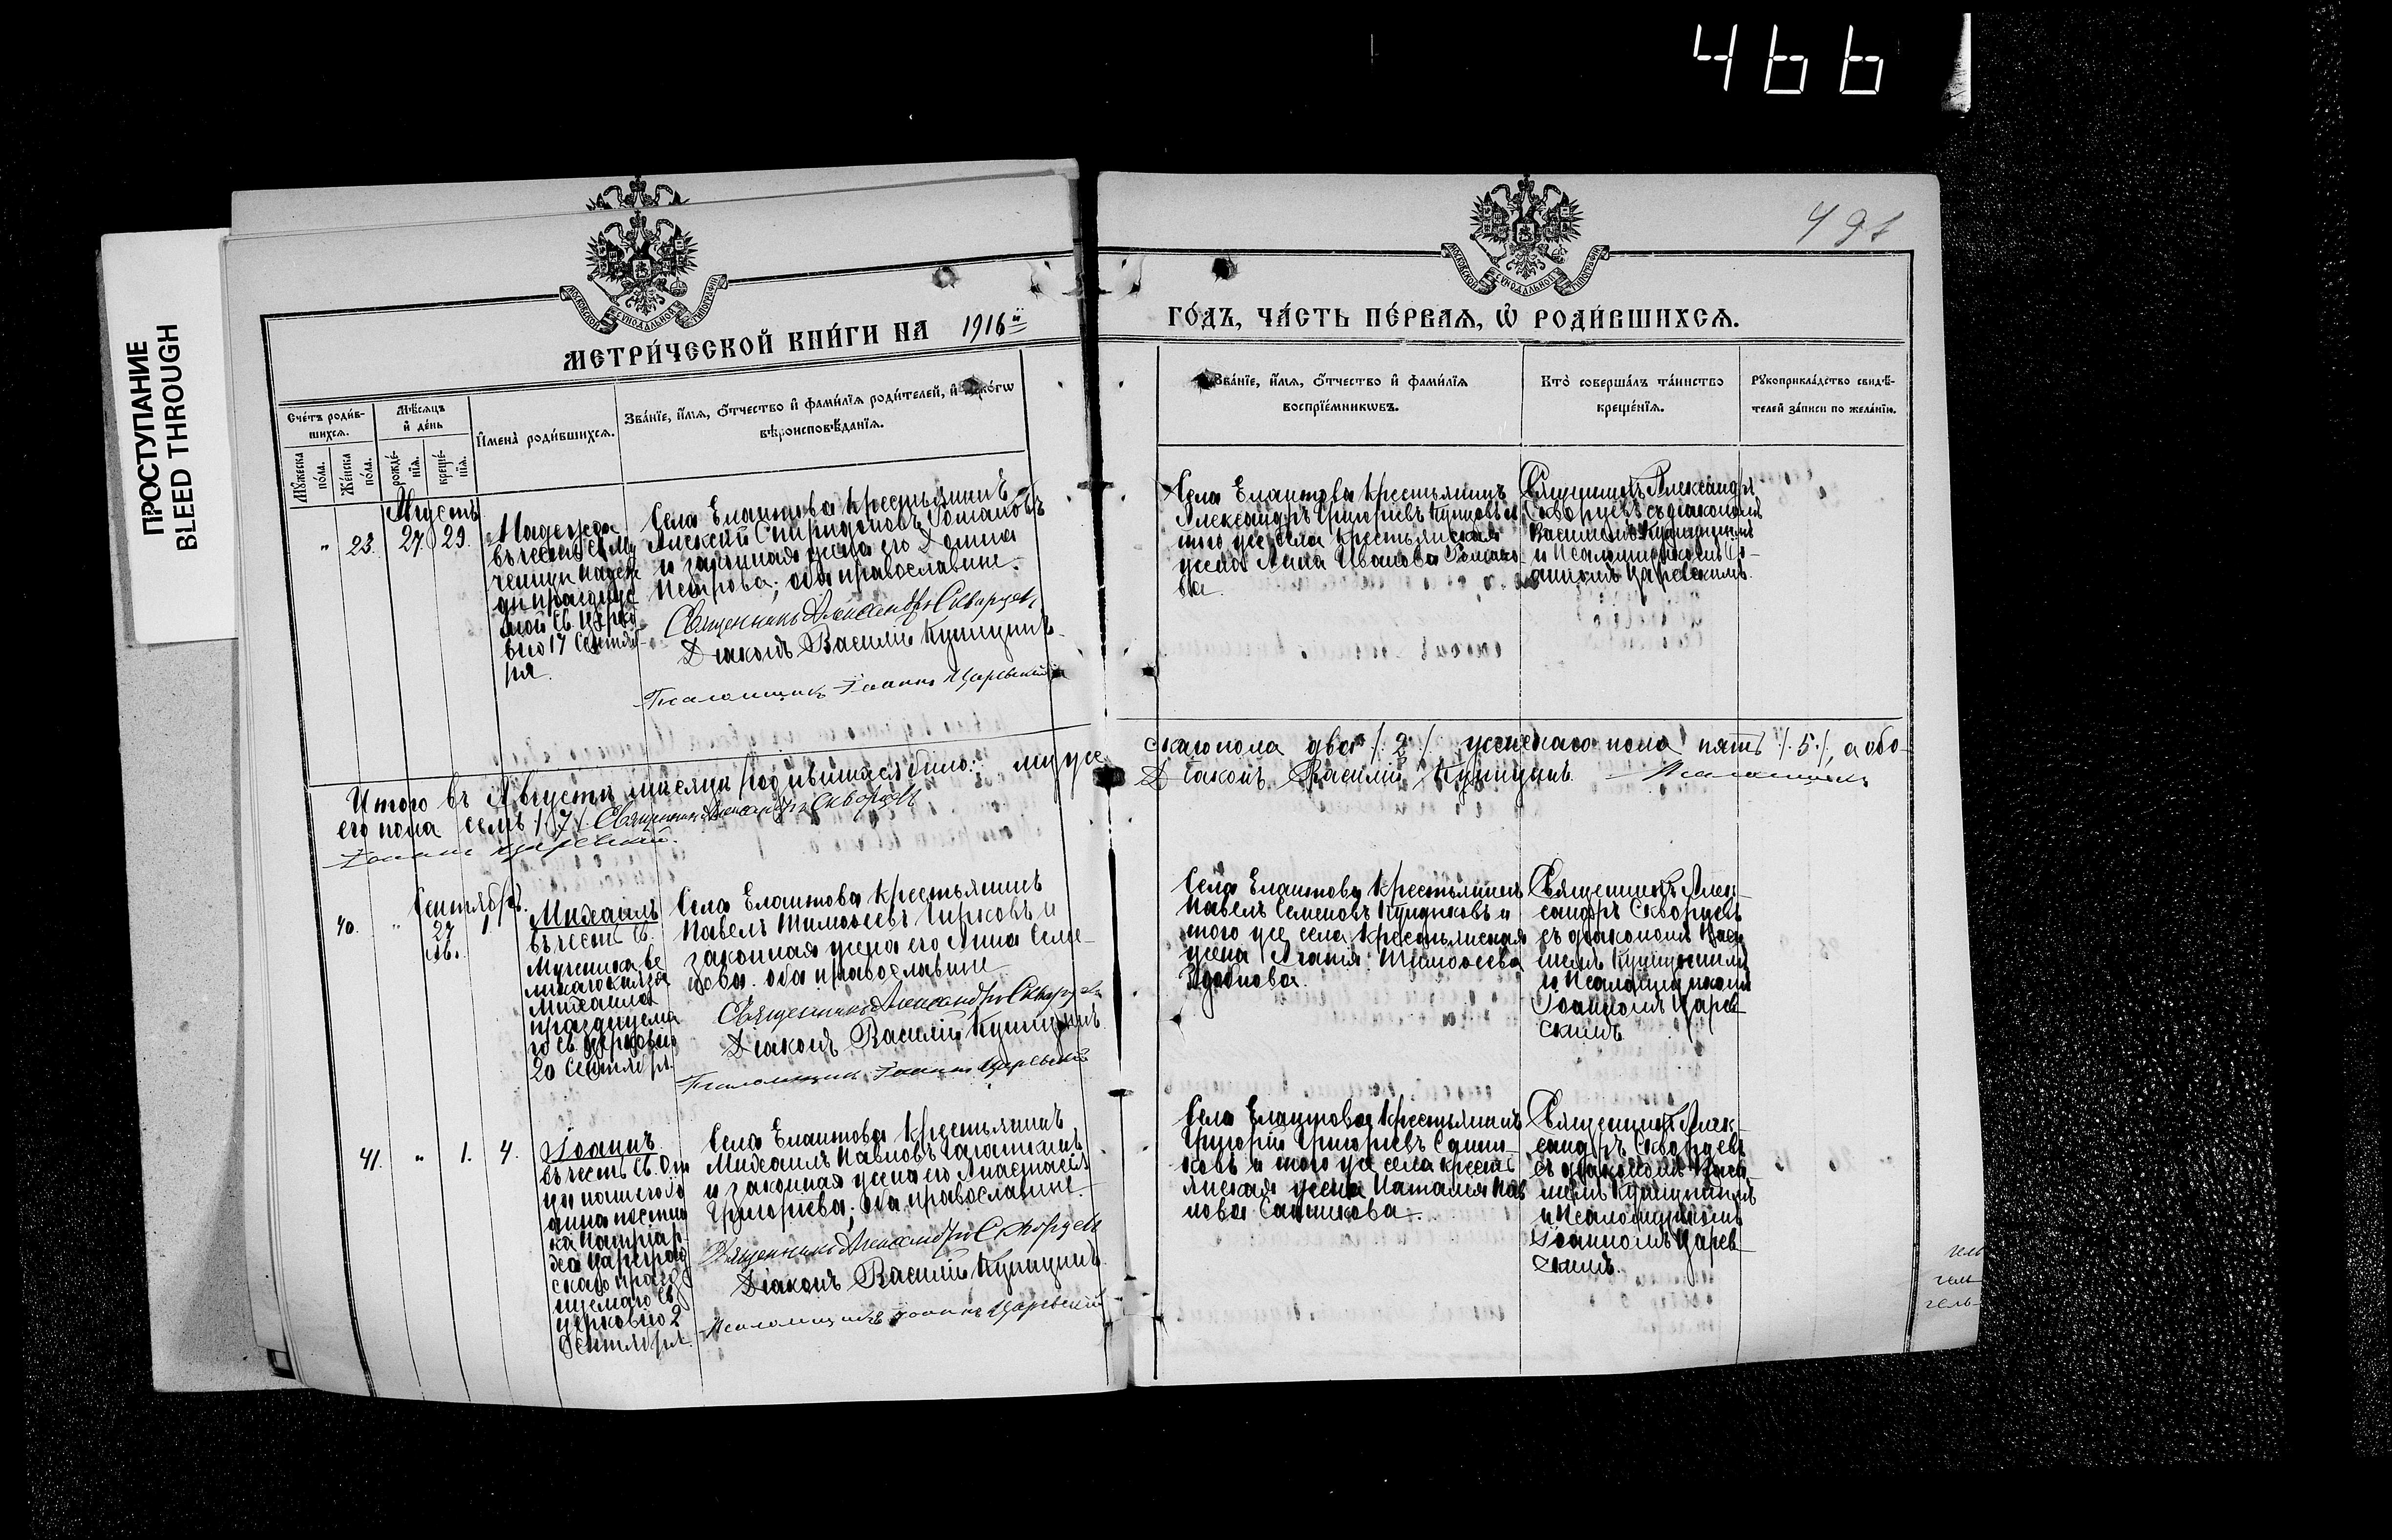 466
ПРОСТУПАНИЕ
BLEED THROUGH
491
МОСКОВСКОЙ СѴНОДАЛЬНОЙ ТИПОГРАФІИ
МОСКОВСКОЙ СѴНОДАЛЬНОЙ ТИПОГРАФІИ
МЕТРИ́ЧЕСКОЙ КНИ́ГИ НА 1916й
ГО́ДЪ, ЧА́СТЬ ПЕ́РВАѦ, Ѡ҆ РОДИ́ВШИХСѦ.
Счетъ роди́в-
шихсѧ.
Мꙋжеска
по́ла.
Же́нска
по́ла.
Мѣ́сяцъ
и҆ де́нь
рожде́-
нїѧ.
креще́-
нїѧ.
И҆мена̀ роди́вшихсѧ.
Зва́нїе, и҆́мѧ, ѻ҆́тчество и҆ фами́лїѧ роди́телей, и҆ како́гѡ
вѣроисповѣ́данїѧ.
Зва́нїе, и҆́мѧ, ѻ҆́тчество и҆ фами́лїѧ
воспрїе́мникѡвъ.
Кто̀ соверша́лъ та́инство
креще́нїѧ.
Рꙋкоприкла́дство свидѣ́-
телей за́писи по жела́нїю.
Августъ
" 23. 27. 29.
Надежда
въ честь св. му
ченицы Надеж
ды празднуе
мой св. церко
вью 17 Сентяб-
ря.
Села Елатмова крестьянинъ
Алексій Спиридоновъ Романовъ
и законная жена его Домна
Петрова; оба православные.
Священникъ Александръ Скворцевъ
Діаконъ Василій Купицынъ
Псаломщикъ Іоаннъ Царевскій
Села Елатмова крестьянинъ
Александръ Григорьевъ и
того же села крестьянская
жена Анна Иванова Романо-
ва
Священникъ Александръ
Скворцевъ съ діакономъ
Василіемъ Купицынымъ
и Псаломщикомъ Іо-
анномъ Царевскимъ.
Итого въ Августѣ мѣсяцѣ родившихся было: муже
скаго пола два /. 2 /. женскаго пола пять /. 5 /., а обо-
его пола семь /. 7 /. Священникъ Александръ Скворцевъ
Діаконъ Василій Купицынъ Псаломщикъ
Іоаннъ Царевскій.
Сентябрь
40. " 29 1.
Ав.
Михаилъ
въ честь св.
Мученика ве
ликаго князя
Михаила
празднуема
го св. церковью
20 Сентября.
Села Елатмова крестьянинъ
Павелъ Тимоѳеевъ Чирковъ и
законная жена его Анна Семе-
нова. оба православные
Священникъ Александръ Скворцевъ
Діаконъ Василій Купицынъ
Псаломщикъ Іоаннъ Царевскій
Села Елатмова крестьянинъ
Павелъ Семеновъ и
того же села крестьянская
жена Агафія Тимоѳеева
Священникъ Алек-
сандръ Скворцевъ
съ діакономъ Васи
ліемъ Купицынымъ
и Псаломщикомъ
Іоанномъ Царев-
скимъ.
41. " 1. 4.
Іоаннъ
въ честь св. От
ца нашего Іо
анна постни
ка Патріар-
ха Цареград
скаго празд
нуемаго св.
церковью 2
Сентября.
Села Елатмова крестьянинъ
Михаилъ Павловъ
и законная жена его Анастасія
Григоріева; оба православные.
Священникъ Александръ Скворцевъ
Діаконъ Василій Купицынъ
Псаломщикъ Іоаннъ Царевскій
Села Елатмова крестьянинъ
Григорій Григорьевъ Санни-
ковъ и того же села кресть
янская жена Наталія Пав
лова Санникова.
Священникъ Алек-
сандръ Скворцевъ
съ діакономъ Васи
ліемъ Купицынымъ
и Псаломщикомъ
Іоанномъ Царев-
скимъ.